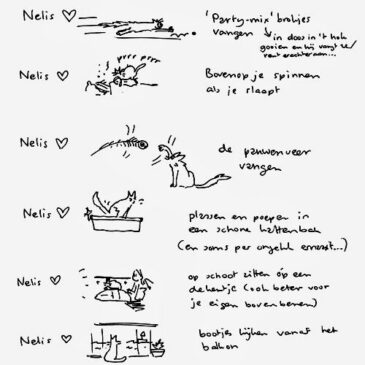 Nelis ♡
'Party-mix' brokjes
vangen
in doos in 't hok
gooien en hij vangt ze/
rent erachteraan...
Nelis ♡
Bovenop je spinnen
als je slaapt
Nelis ♡
de pauwenveer
vangen
Nelis ♡
plassen en poepen in
een schone kattenbak
(en soms per ongeluk ernaast...)
Nelis ♡
op schoot zitten óp een
dekentje (ook beter voor
je eigen bovenbenen)
Nelis ♡
bootjes kijken vanaf het
balkon